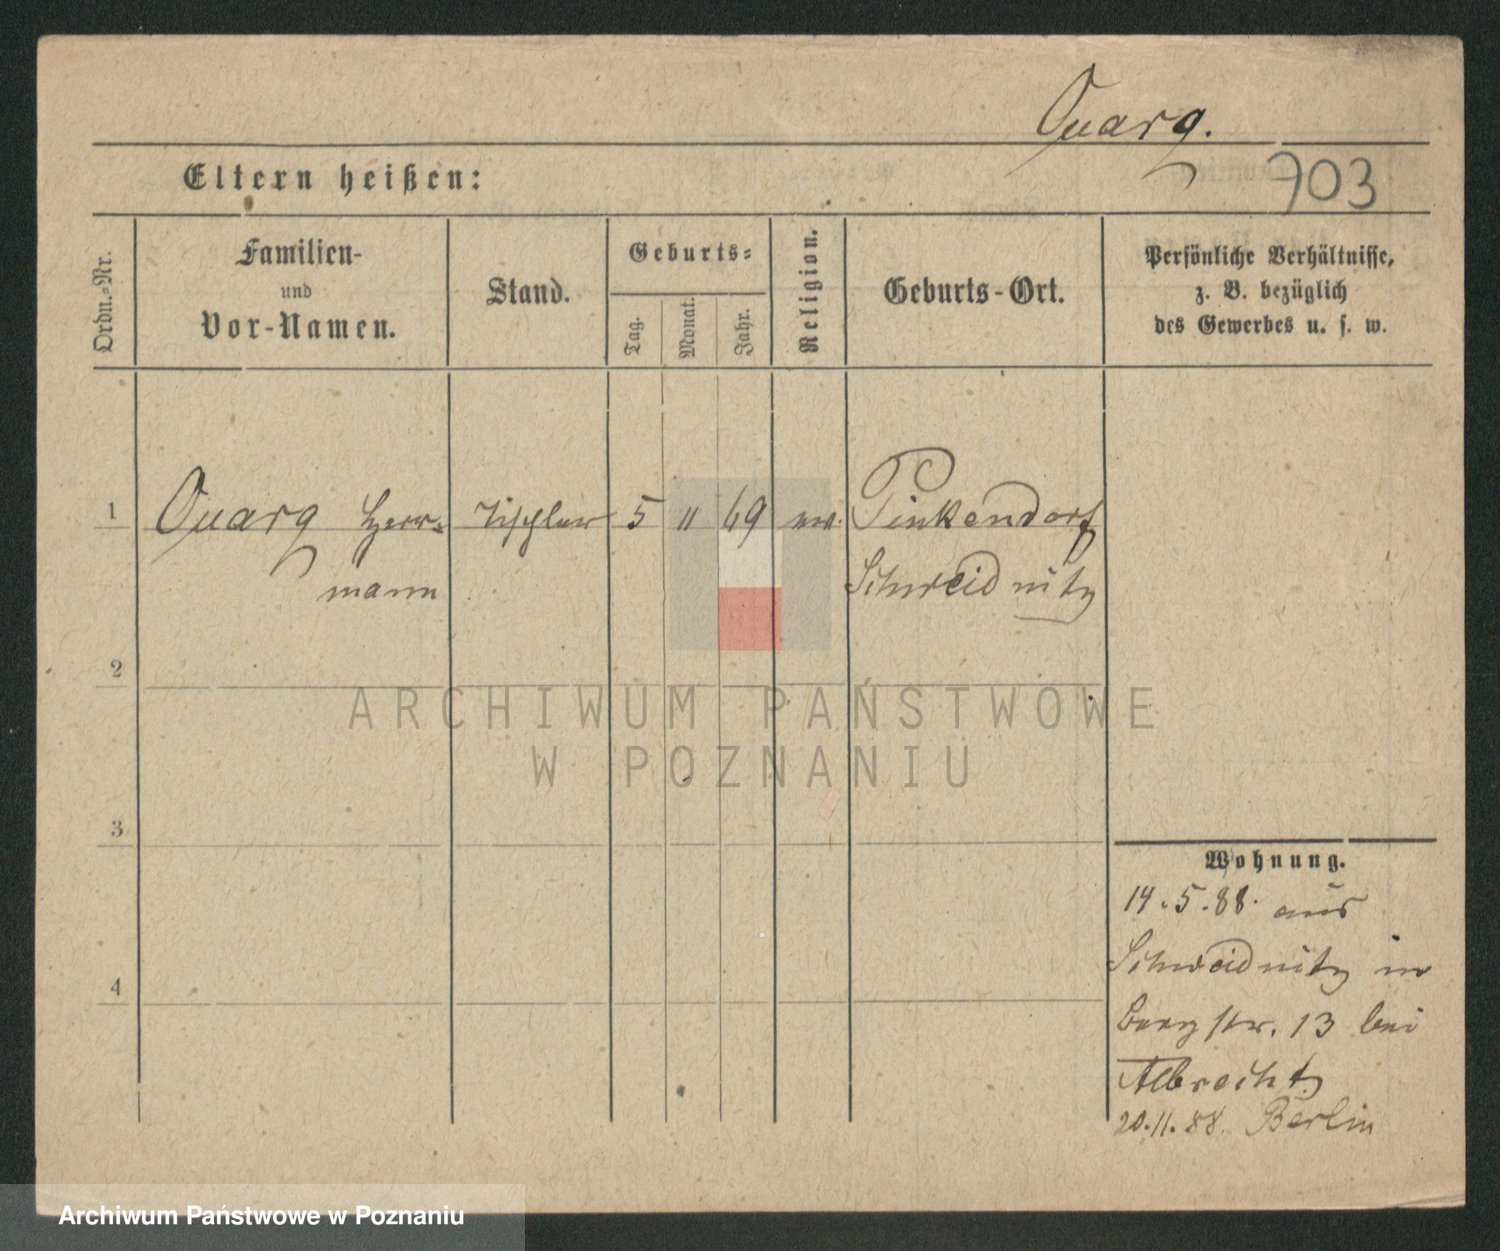 Quarg.
Eltern heißen:
703
Ordn.-Nr.
Familien-
und
Vor-Namen.
Stand.
Geburts-
Tag.
Monat.
Jahr.
Religion.
Geburts-Ort.
Persönliche Verhältnisse,
z. B. bezüglich
des Gewerbes u. s. w.
1 Quarg Herr- Tischler 5 11 69 ev. Pinkendorf
mann Schweidnitz
2
ARCHIWUM PAŃSTWOWE
W POZNANIU
3
Wohnung.
14.5.88. aus
Schweidnitz in
4
Bergstr. 13 bei
Albrecht
20.11.88. Berlin
Archiwum Państwowe w Poznaniu